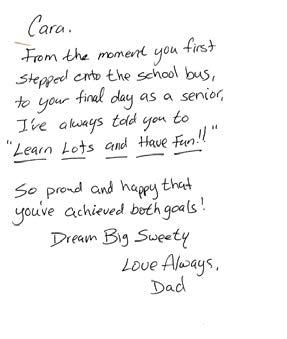 Cara.
From the moment you first
stepped onto the school bus,
to your final day as a senior,
I've always told you to
"Learn Lots and Have Fun!!"
So proud and happy that
you've achieved both goals!
Dream Big Sweety
Love Always,
Dad